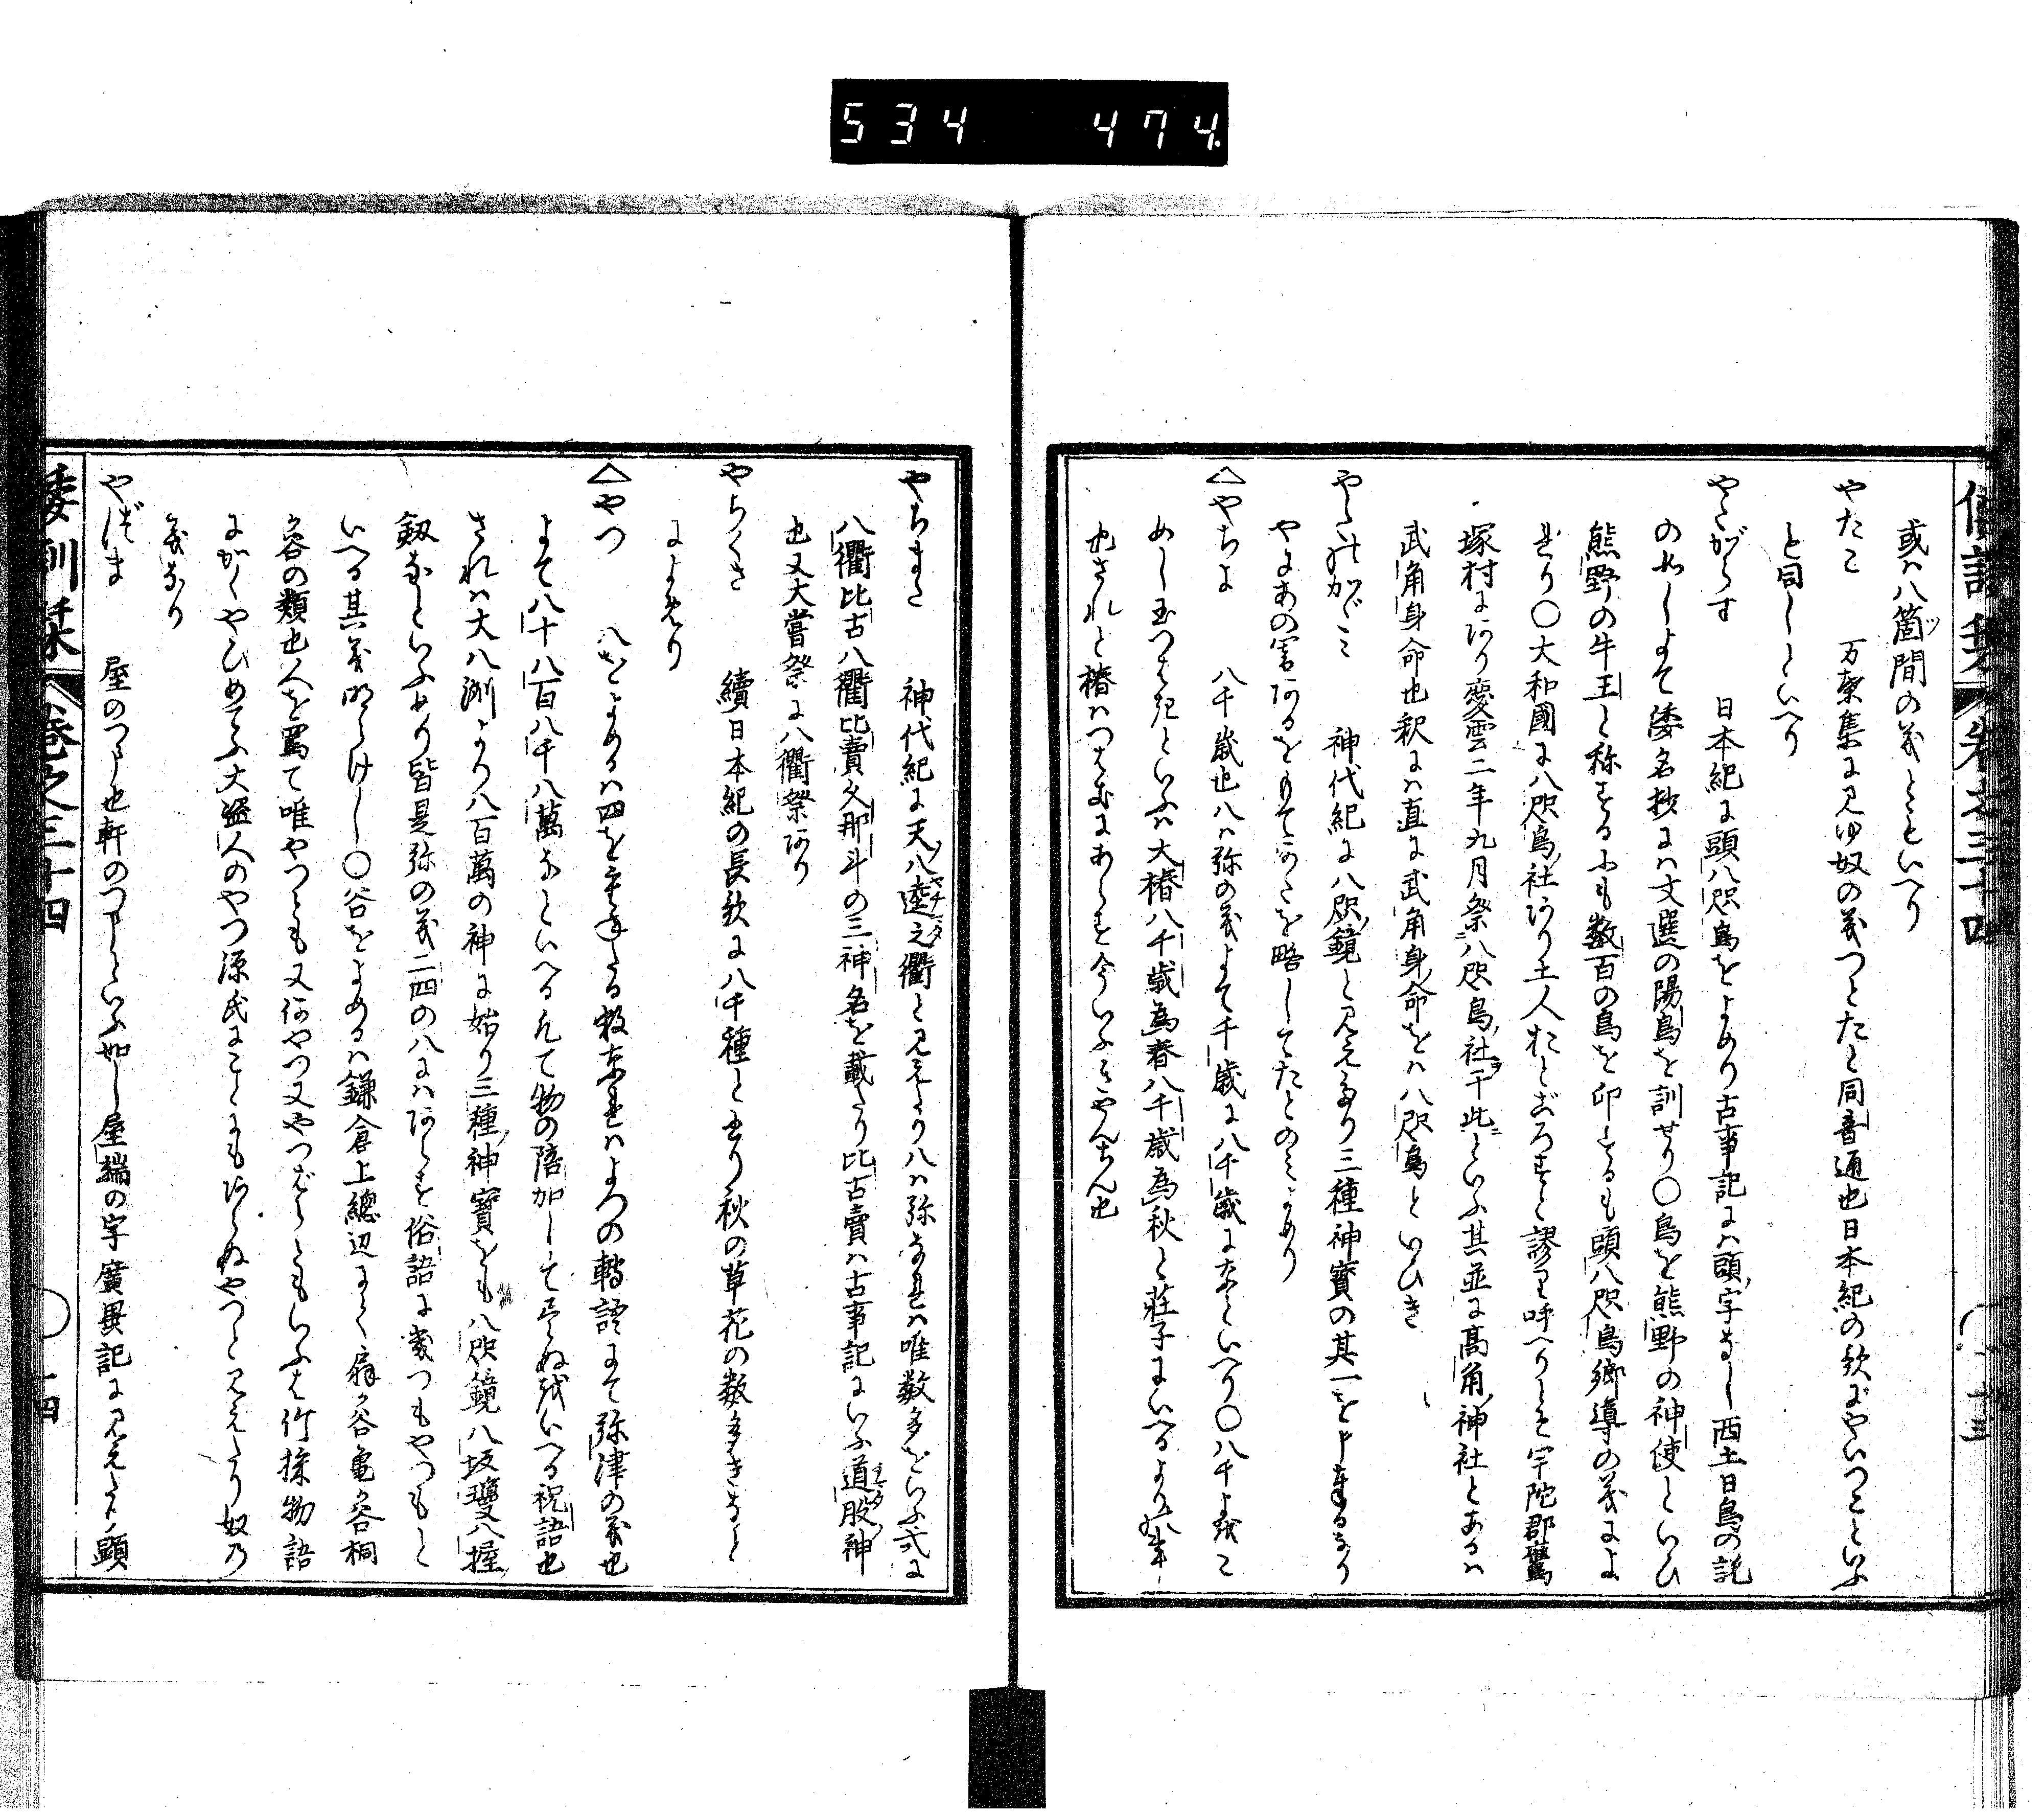 534 474.
倭訓栞 巻之三十四 十三
或ハ八箇間の義ともいへり
やたこ 万葉集に見ゆ奴の義つとたと同音通也日本紀の歌にやいつこといふ
と同しといへり
やたがらす 日本紀に頭八咫烏をよめり古事記には頭字なし西土日烏の説
の如しよて倭名抄には文選の陽烏を訓せり〇烏を熊野の神使といひ
熊野の牛王と称するにも数百の烏を印するも頭八咫烏郷導の義によ
れり〇大和國に八咫烏社あり土人おとごろすと謬り呼へりとそ宇陀郡鷹
塚村にあり慶雲二年九月祭八咫烏社于此といふ其並に高角神社とあるハ
武角身命也釈には直に武角身命をハ八咫烏といひき
やたのかゞミ 神代紀に八咫鏡と見えたり三種神寶の其一を申奉るなり
やにあの害あるをもてあたを略してたとのミよめり
△やちよ 八千歳也八ハ弥の義よて千歳に八千歳になといへり〇八千よ
めし玉つはきといふハ大椿八千歳為春八千歳為秋と荘子にいへるより
也されと椿ハつはきにあらす今いふきやんちん也
やちまた 神代紀に天八達之衢と見えたり八ハ弥なれハ唯数多をいふ式に
八衢比古八衢比賣久那斗の三神名を載たり比古賣ハ古事記にいふ道股神
也又大嘗祭に八衢祭あり
やちくさ 續日本紀の長歌に八千種と見えり秋の草花の数多きなと
によめり
△やつ 八をよめるハ四を重ねたる数なれハよつの轉語にて弥津の義也
よて八十八百八千八萬なといへる凡て物の陪加して尽ぬ代いへる祝語也
されハ大八洲より八百萬の神に始り三種神寶をも八咫鏡八坂瓊八握
釼なといふめり皆是弥の義二四の八にハあらす俗語に幾つもやつもと
いへる其義明らけし〇谷をよめるハ鎌倉上總辺にて扇谷亀谷桐
谷の類也人を罵て唯やつとも又何やつ又やつばらともいふは竹採物語
にがくやひめてふ大盗人のやつ源氏にことにもあらぬやつと見えたり奴乃
義なり
やばま 屋のつま也軒のつまといふ如し屋端の字廣異記に見えたり顕
倭訓栞 巻之三十四 〇 十四